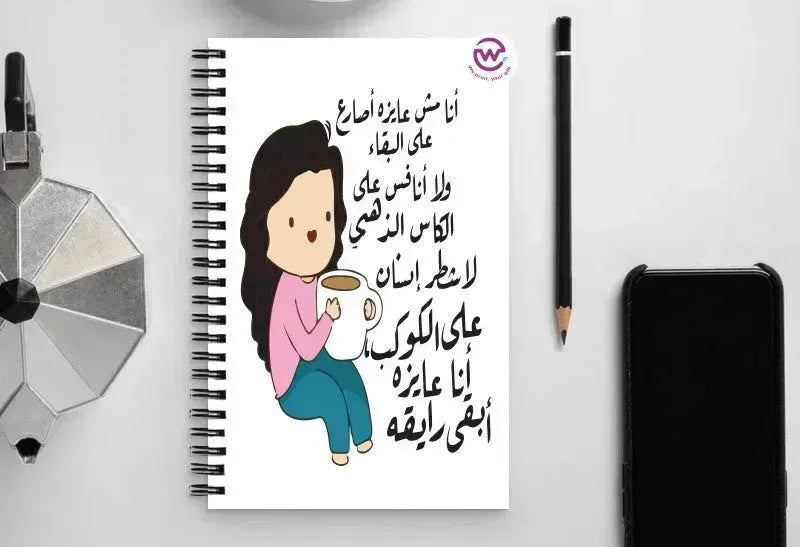 We print, your gift
أنا مش عايزه أصارع
على البقاء
ولا أنافس على
الكاس الذهبي
لاشطر إنسان
على الكوكب
أنا عايزه
أبقى رايقه